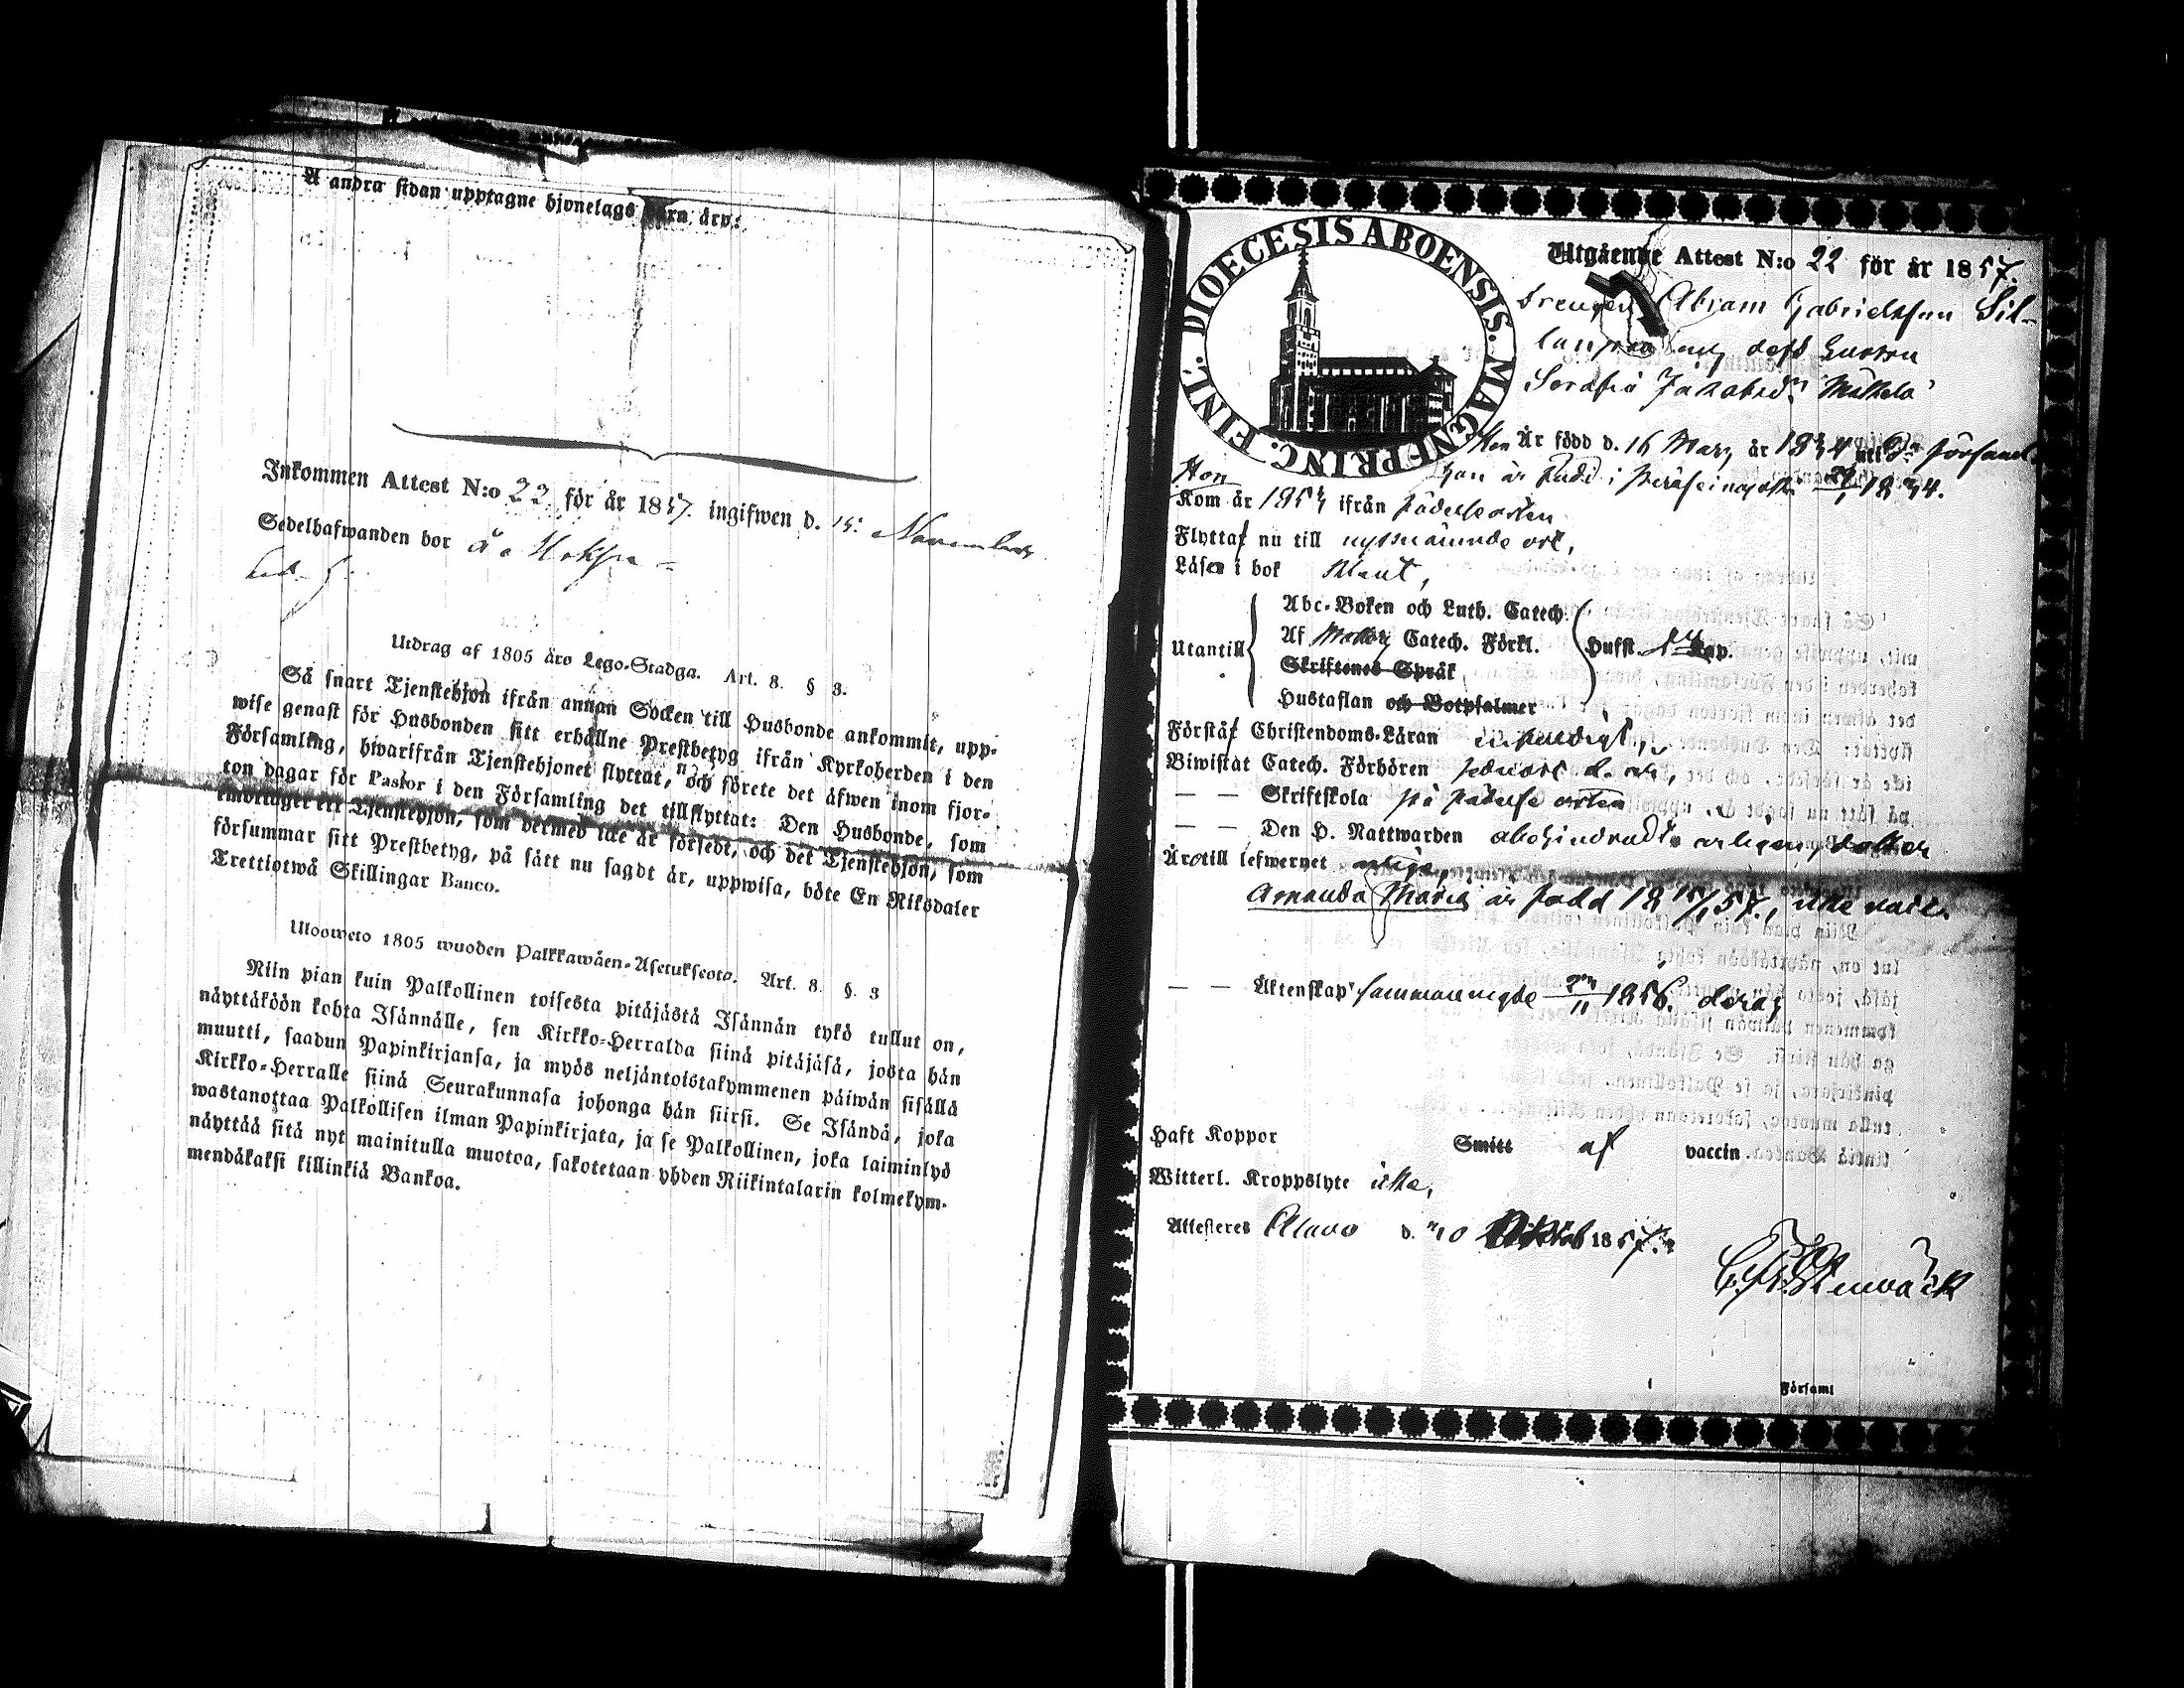 A andra sidan upptagne hjonelags barn äro:
Inkommen Attest N:o 22 för år 1857. ingifwen d. 15: November
Sedelhafwanden bor å
Utdrag af 1805 års Lego-Stadga. Art. 8. § 3.
Så snart Tjenstehjon ifrån annan Socken till Husbonde ankommit, upp-
wise genast för Husbonden sitt erhållne Prestbetyg ifrån Kyrkoherden i den
Församling, hwarifrån Tjenstehjonet flyttat, och förete det äfwen inom fjor-
ton dagar för Pastor i den Församling det tillflyttat: Den Husbonde, som
emottager ett Tjenstehjon, som dermed icke är försedt, och det Tjenstehjon, som
försummar sitt Prestbetyg, på sätt nu sagdt är, uppwisa, böte En Riksdaler
Trettiotwå Skillingar Banco.
Ulosweto 1805 wuoden Palkkawäen-Asetuksesta. Art. 8. §. 3
Niin pian kuin Palkollinen toisesta pitäjästä Isännän tykö tullut on,
näyttäköön kohta Isännälle, sen Kirkko-Herralda siinä pitäjäsä, josta hän
muutti, saadun Papinkirjansa, ja myös neljäntoistakymmenen päiwän sisällä
Kirkko-Herralle siinä Seurakunnasa johonga hän siirsi. Se Isändä, joka
wastanottaa Palkollisen ilman Papinkirjata, ja se Palkollinen, joka laiminlyö
näyttää sitä nyt mainitulla muotoa, sakotetaan yhden Riikintalarin kolmekym-
mendäkaksi killinkiä Bankoa.
DIOECESIS ABOENSIS. MAGNI PRINC. FINL.
Utgående Attest N:o 22 för år 1857.
Drengen Abram Gabrielsson Sil-
lanpää och dess hustru
Serafia Jakobsd:r Mikkola
Hon Är född d. 16 Mars år 1834 församl.
Hon han är född i 1834.
Kom år 1853 ifrån födelseorten
Flyttaf nu till nysnämnde ort,
Läsen i bok slent,
Utantill
Abc-Boken och Luth. Catech.
Af Catech. Förkl.
Skriftenes Språk
Hustaflan och Botpsalmer
Husst. Kap.
Förstå Christendoms-Läran enfaldigt,
Biwistat Catech. Förhören
— — Skriftskola på födelse orten
— — Den H. Nattwarden obehindradt årligen, dotter
Äro till lefwernet ärlige,
Amanda Maria är född 18 57., icke vacc.
— — Äktenskap sammanvigde 1856. deras
Haft Koppor Smitt af vaccin.
Witterl. Kroppslyte icke,
Attesteres Alavo d. 10 1857.
Församl